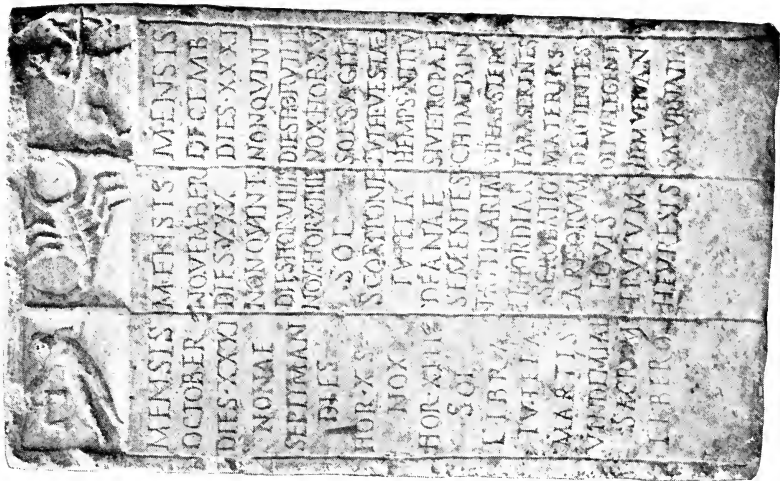 MENSIS
OCTOBER
DIES·XXXI
NONAE
SEPTIMAN
DIES
HOR·X S
NOX
HOR·XIII
SOL
LIBRA
TVTELA
MARTIS
VINDEMIAE
SACRVM
LIBERO
MENSIS
NOVEMBER
DIES·XXX
NON·QVINT
DIES·HOR·VIIII
NOX·HOR·XIIII
SOL
SCORPIONE
TVTELA
DEANAE
SEMENTES
TRITICARIAE
ET·HORDIAR
SCROBATIO
ARBORVM
IOVIS
EPVLVM
HEVRESIS
MENSIS
DECEMB
DIES·XXXI
NON·QVINT
DIES·HOR·VIIII
NOX·HOR·XV
SOL·SAGITT
TVTEL·VESTAE
HIEMPS·INITIV
SIVE·TROPAE
CHIMERIN
VINEAS·STERC
FABA·SERENTES
MATERIAS
DEICIENTES
OLIVA·LEGENT
ITEM·VENAN
SATVRNALIA